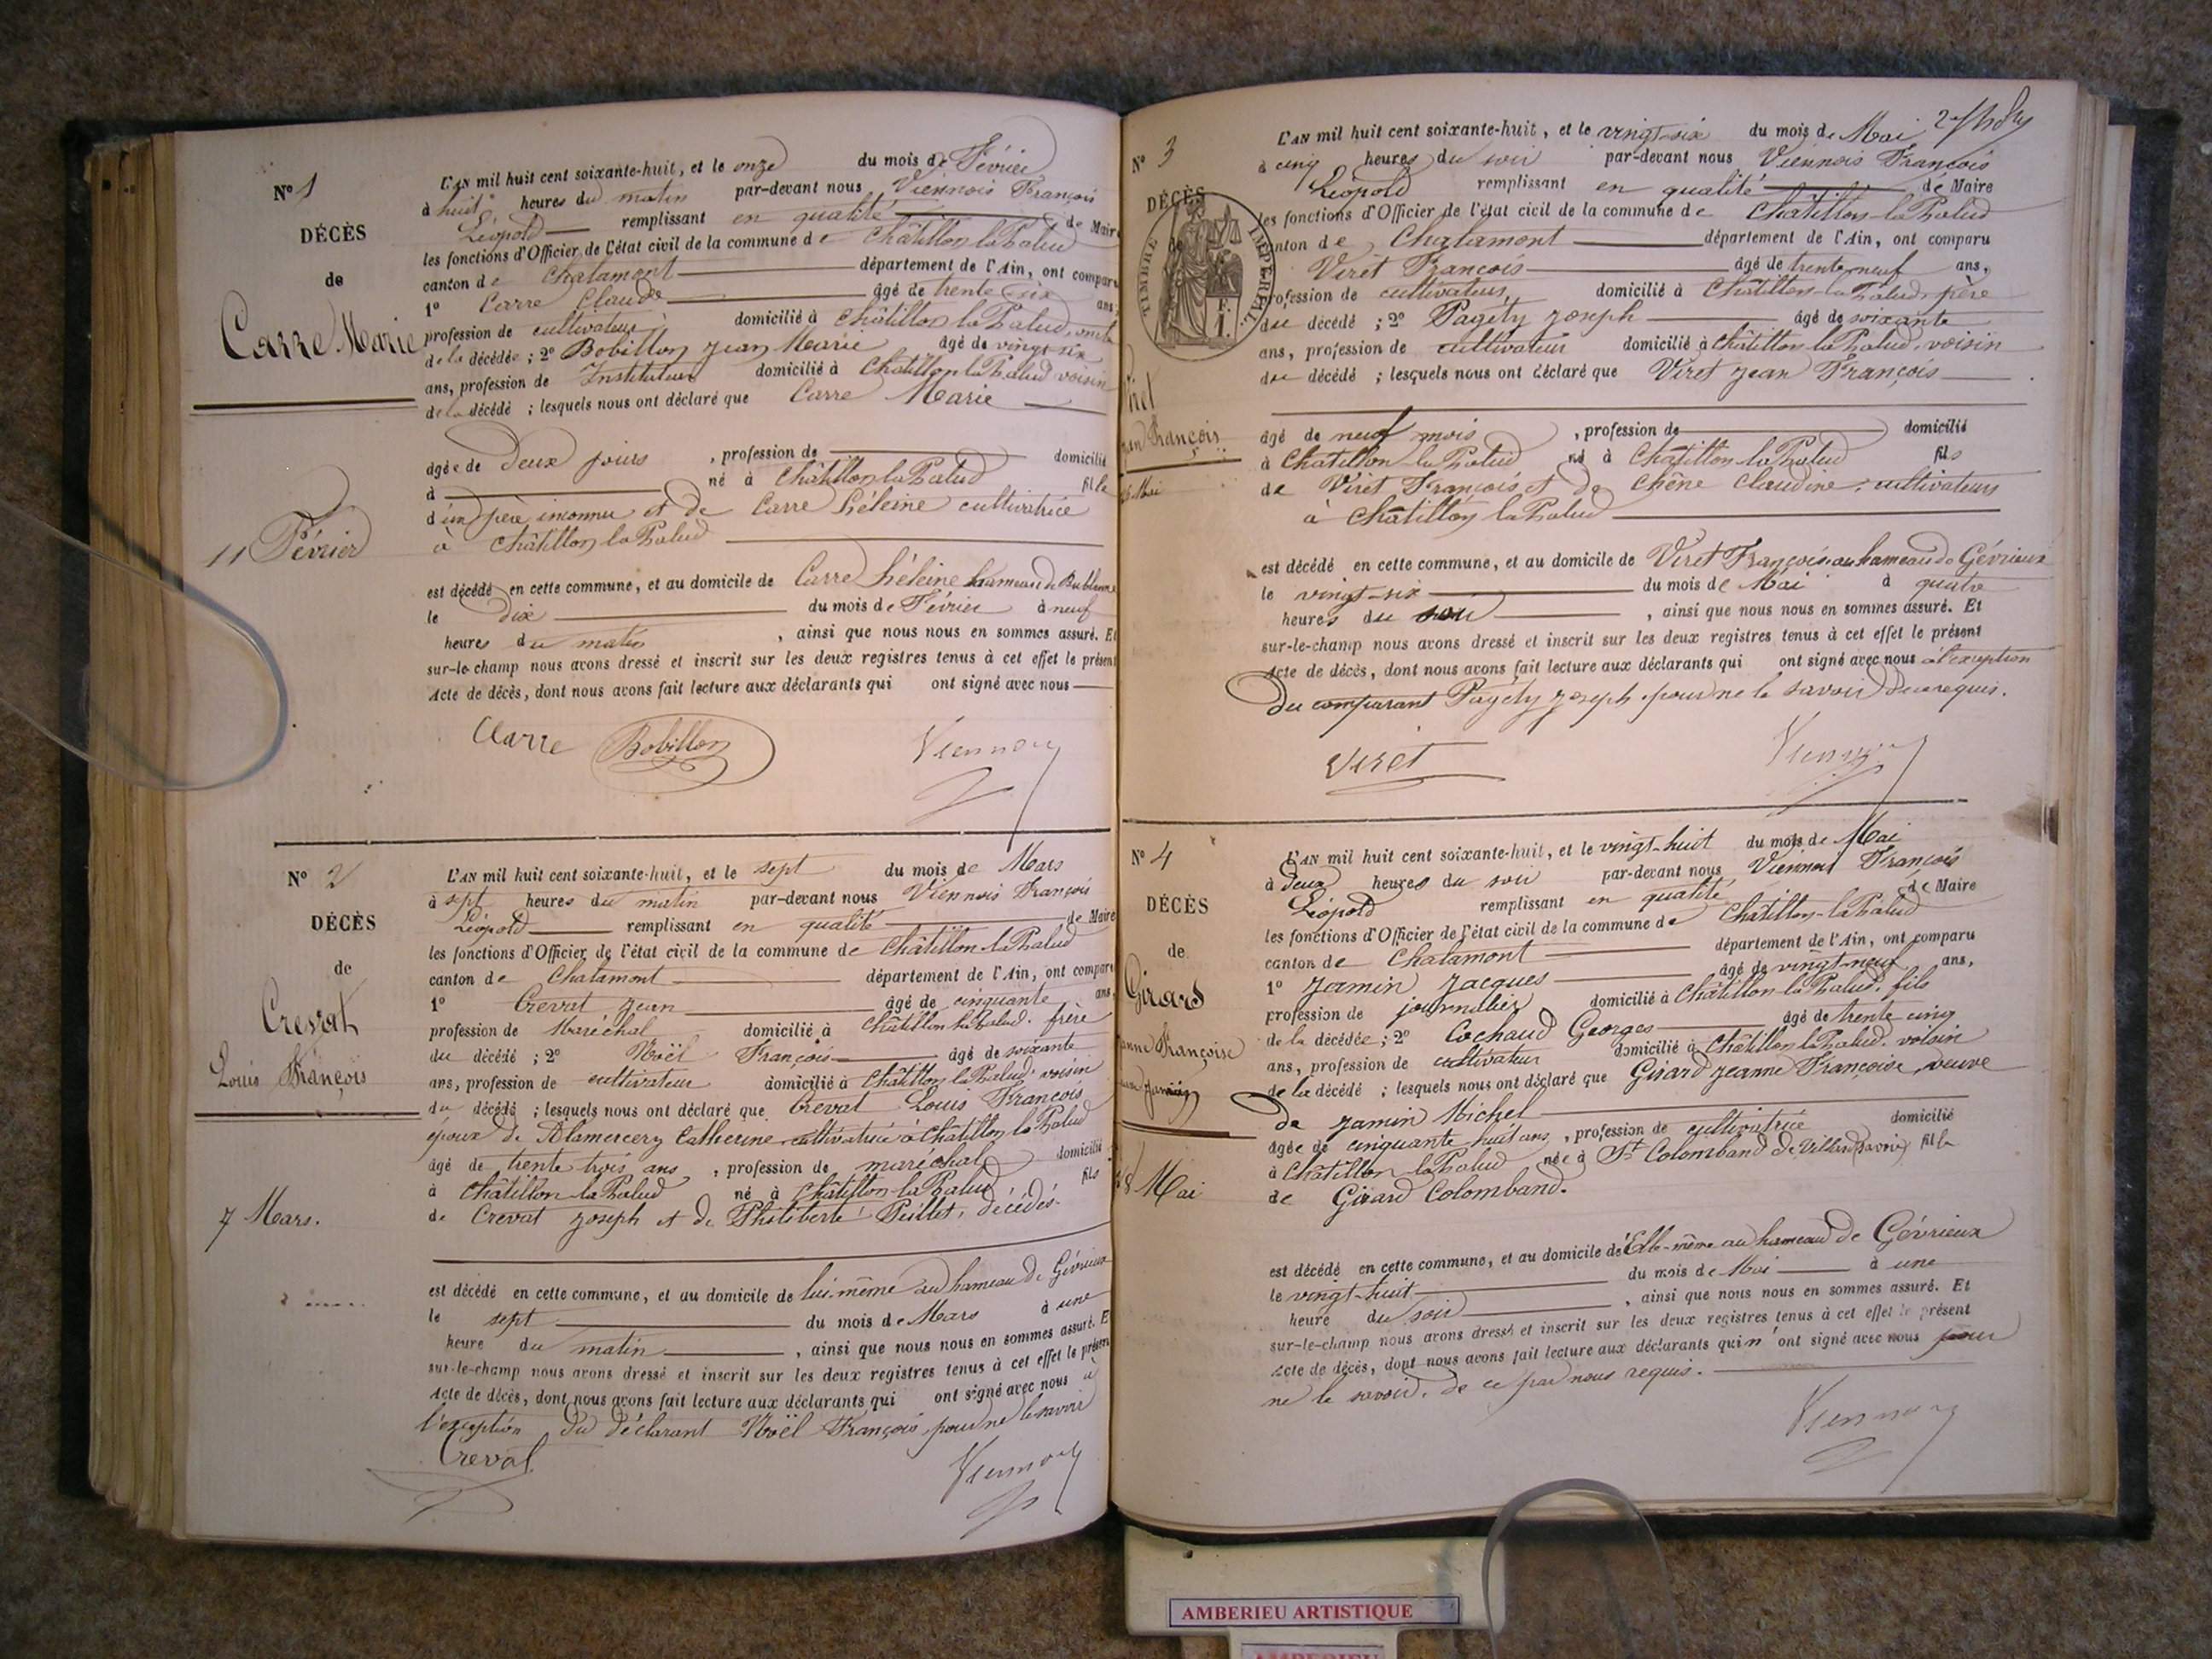 N° 1
DÉCÈS
de
Carre Marie
11 Février
L'AN mil huit cent soixante-huit, et le onze du mois de Février
à huit heures du matin par-devant nous Viennois François
Léopold remplissant en qualité de Maire
les fonctions d'Officier de l'état civil de la commune de Châtillon la Palud
canton de Chalamont département de l'Ain, ont comparu
1° Carre Claude âgé de trente six ans,
profession de cultivateur domicilié à Châtillon la Palud, oncle
de la décédée ; 2° Bobillon Jean Marie âgé de vingt-six
ans, profession de Instituteur domicilié à Châtillon la Palud voisin
de la décédé ; lesquels nous ont déclaré que Carre Marie
âgée de Deux jours , profession de domicilié
à né à Châtillon la Palud fille
d'un père inconnu et de Carre héleine cultivatrice
à Châtillon la Palud
est décédé en cette commune, et au domicile de Carre héleine hameau de Bublanne
le dix du mois de Février à neuf
heures du matin , ainsi que nous nous en sommes assuré. Et
sur-le-champ nous avons dressé et inscrit sur les deux registres tenus à cet effet le présent
Acte de décès, dont nous avons fait lecture aux déclarants qui ont signé avec nous
Carre Bobillon Viennois
N° 2
DÉCÈS
de
Crevat
Louis François
7 Mars.
L'AN mil huit cent soixante-huit, et le sept du mois de Mars
à sept heures du matin par-devant nous Viennois François
Léopold remplissant en qualité de Maire
les fonctions d'Officier de l'état civil de la commune de Châtillon-la-Palud
canton de Chalamont département de l'Ain, ont comparu
1° Crevat Jean âgé de cinquante ans,
profession de Maréchal domicilié à Châtillon la Palud. frère
du décédé ; 2° Noël François âgé de soixante
ans, profession de cultivateur domicilié à Châtillon la Palud. voisin
du décédé ; lesquels nous ont déclaré que Crevat Louis François
époux de Alamercery Catherine cultivatrice à Châtillon la Palud
âgé de trente trois ans , profession de maréchal domicilié
à Châtillon-la-Palud né à Châtillon-la-Palud fils
de Crevat Joseph et de Philiberte Peillet, décédés.
est décédé en cette commune, et au domicile de lui-même au hameau de Gévrieux
le sept du mois de Mars à une
heure du matin , ainsi que nous nous en sommes assuré. Et
sur-le-champ nous avons dressé et inscrit sur les deux registres tenus à cet effet le présent
Acte de décès, dont nous avons fait lecture aux déclarants qui ont signé avec nous à
l'exception du déclarant Noël François, pour ne le savoir
Crevat Viennois
N° 3
DÉCÈS
TIMBRE IMPERIAL
Viret
Jean François
26 Mai
L'AN mil huit cent soixante-huit, et le vingt-six du mois de Mai
à cinq heures du soir par-devant nous Viennois François
Léopold remplissant en qualité de Maire
les fonctions d'Officier de l'état civil de la commune de Châtillon-la-Palud
canton de Chalamont département de l'Ain, ont comparu
Viret François âgé de trente neuf ans,
profession de cultivateur, domicilié à Châtillon-la-Palud, père
du décédé ; 2° Pagéty Joseph âgé de soixante
ans, profession de cultivateur domicilié à Châtillon la Palud, voisin
du décédé ; lesquels nous ont déclaré que Viret Jean François
âgé de neuf mois , profession de domicilié
à Châtillon-la-Palud né à Châtillon la Palud fils
de Viret François et de Chêne Claudine, cultivateurs
à Châtillon la Palud
est décédé en cette commune, et au domicile de Viret François au hameau de Gévrieux
le vingt-six du mois de Mai à quatre
heures du soir , ainsi que nous nous en sommes assuré. Et
sur-le-champ nous avons dressé et inscrit sur les deux registres tenus à cet effet le présent
Acte de décès, dont nous avons fait lecture aux déclarants qui ont signé avec nous à l'exception
du comparant Pagéty Joseph, pour ne le savoir de ce requis.
Viret Viennois
N° 4
DÉCÈS
de
Girard
Jeanne Françoise
Jamin
28 Mai
L'AN mil huit cent soixante-huit, et le vingt-huit du mois de Mai
à deux heures du soir par-devant nous Viennois François
Léopold remplissant en qualité de Maire
les fonctions d'Officier de l'état civil de la commune de Châtillon-la-Palud
canton de Chalamont département de l'Ain, ont comparu
1° Jamin Jacques âgé de vingt-neuf ans,
profession de journalier domicilié à Châtillon la Palud. fils
de la décédée ; 2° Cochaud Georges âgé de trente cinq
ans, profession de cultivateur domicilié à Châtillon la Palud. voisin
de la décédé ; lesquels nous ont déclaré que Girard Jeanne Françoise, veuve
de Jamin Michel
âgée de cinquante huit ans, profession de cultivatrice domicilié
à Châtillon la Palud née à St Colomband de Villard (Savoie) fille
de Girard Colomband.
est décédé en cette commune, et au domicile de Elle-même au hameau de Gévrieux
le vingt-huit du mois de Mai à une
heure du soir , ainsi que nous nous en sommes assuré. Et
sur-le-champ nous avons dressé et inscrit sur les deux registres tenus à cet effet le présent
Acte de décès, dont nous avons fait lecture aux déclarants qui n'ont signé avec nous pour
ne le savoir, de ce par nous requis.
Viennois
AMBERIEU ARTISTIQUE
AMBERIEU